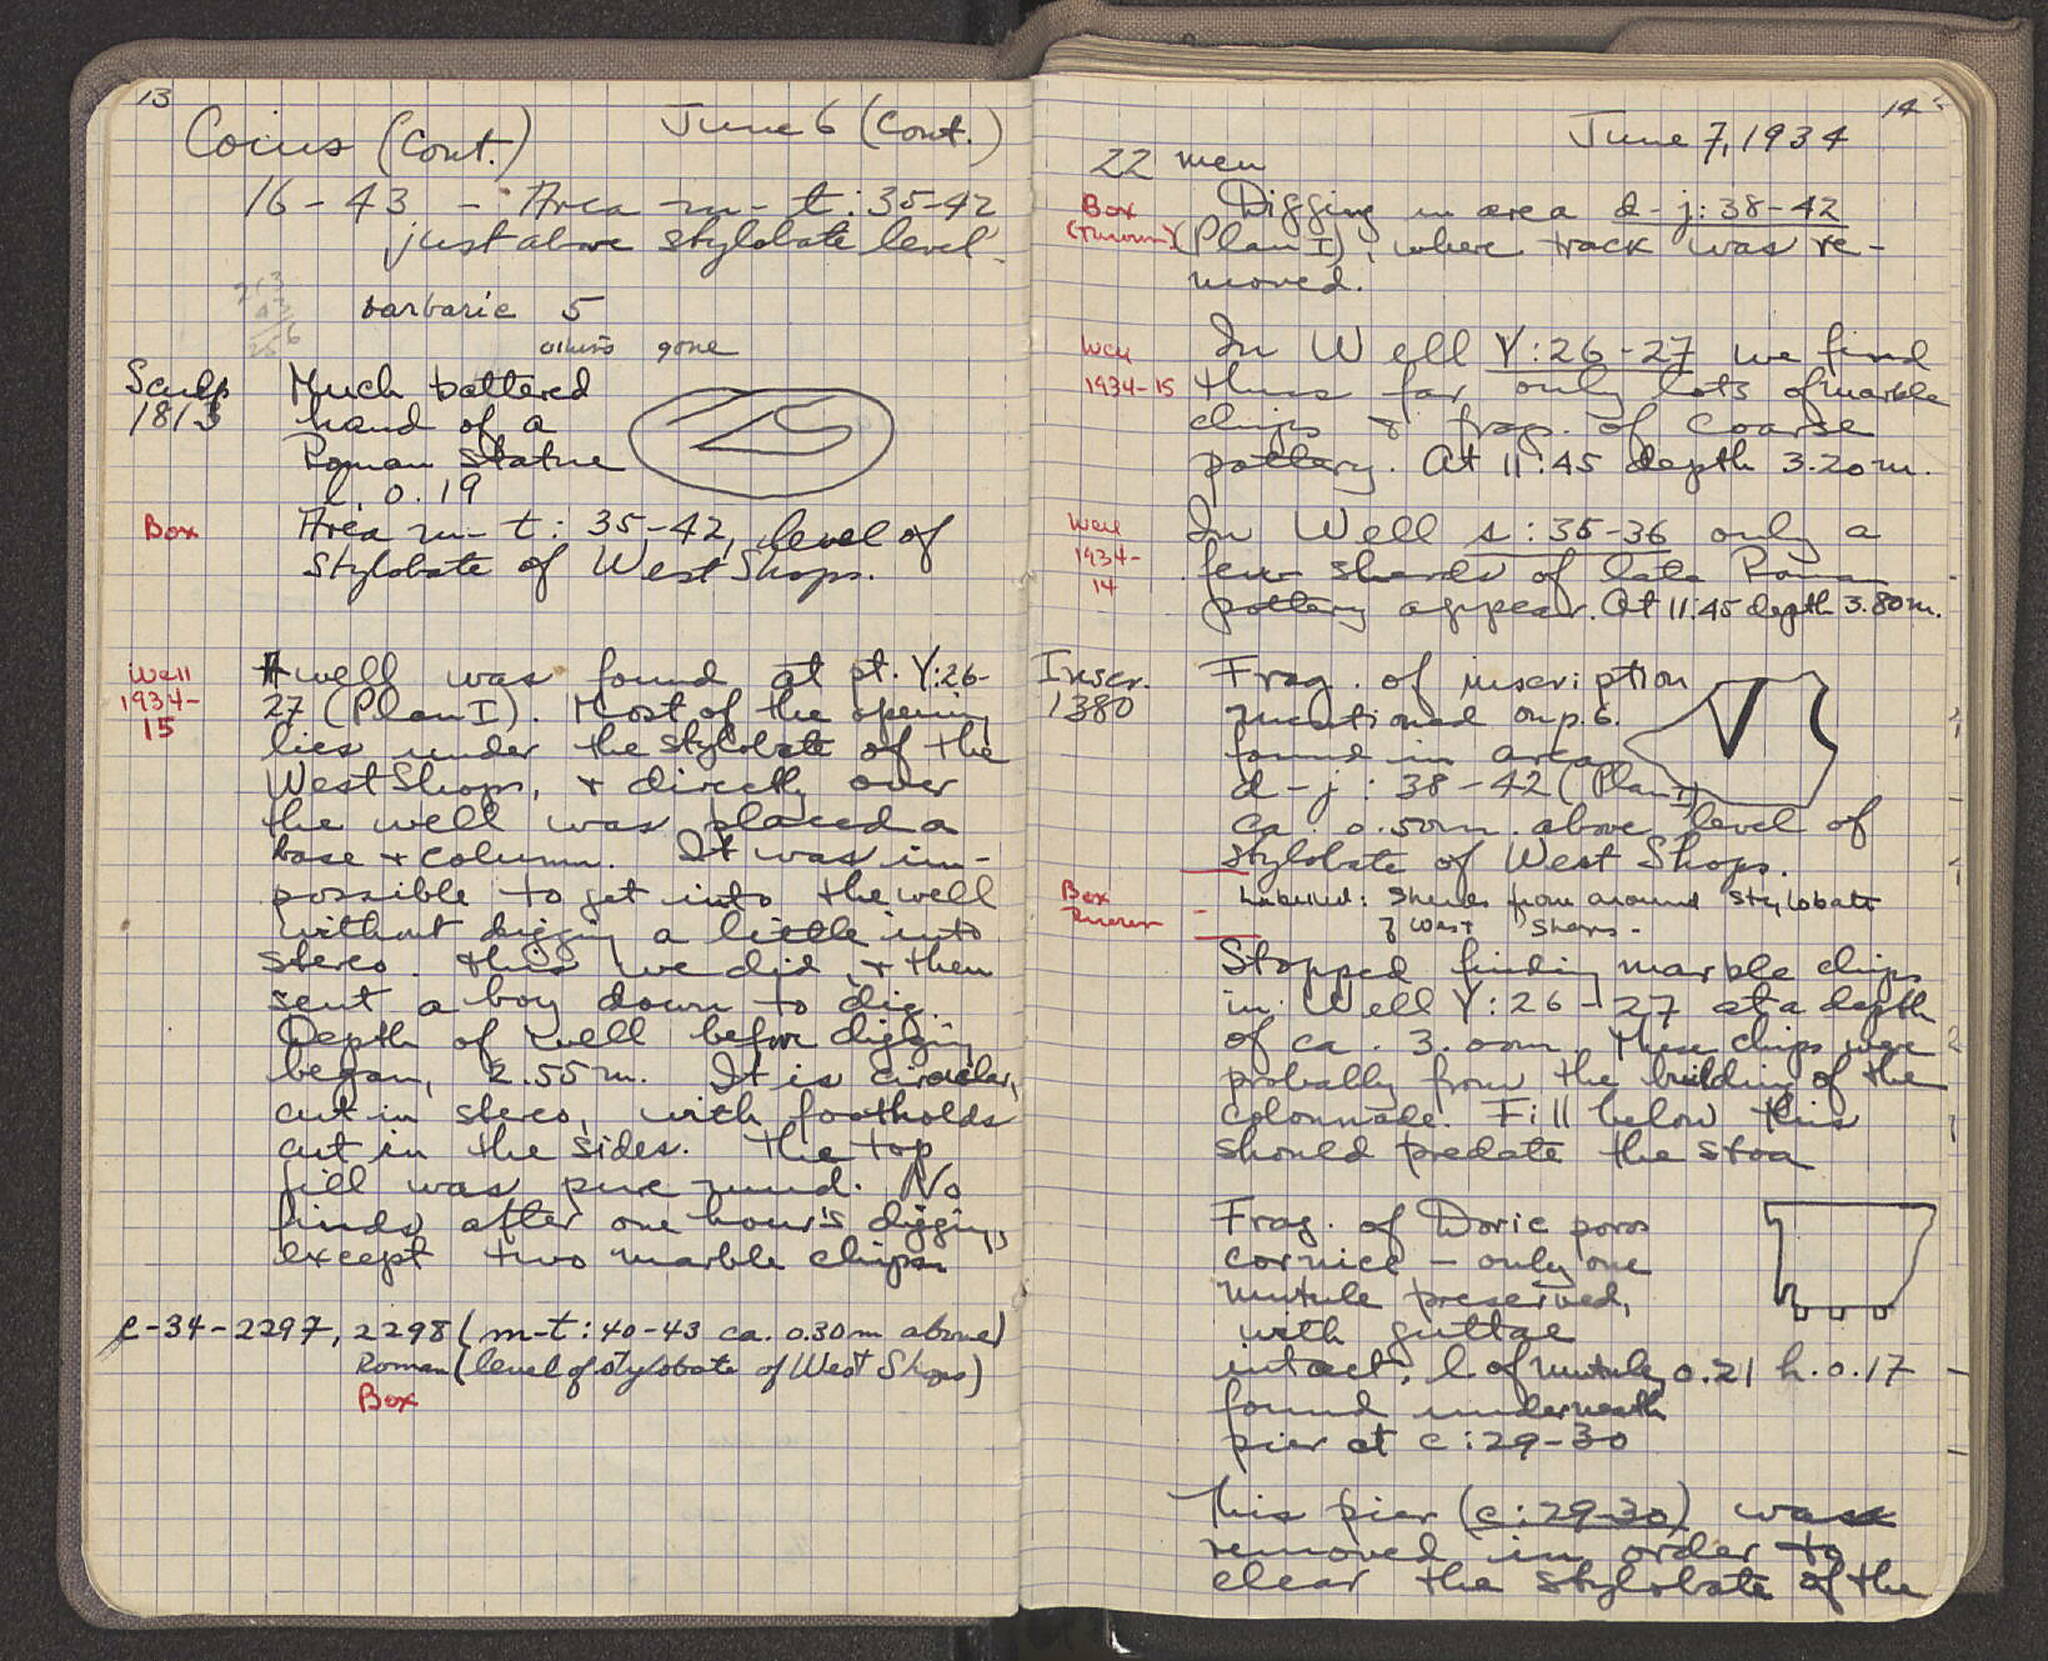 13
June 6 (Cont.)
Coins (Cont.)
16 - 43 - Area m - t : 35-42
just above stylobate level.
barbaric 5
others gone
Sculp
1813
Much battered
hand of a
Roman statue
l. 0.19
Box
Area m - t : 35-42, level of
stylobate of West Shops.
Well
1934-
15
A well was found at pt. Y:26-
27 (Plan I). Most of the opening
lies under the stylobate of the
West Shops, + directly over
the well was placed a
base + column. It was im-
possible to get into the well
without digging a little into
stereo. This we did, + then
sent a boy down to dig.
Depth of well before digging
began, 2.55 m. It is circular,
cut in stereo, with footholds
cut in the sides. The top
fill was pure mud. No
finds, after one hour's digging,
except two marble chips.
C-34-2297, 2298 (m-t : 40-43 ca. 0.30m above)
Roman (level of stylobate of West Shops)
Box
14
June 7, 1934
22 men
Box
(Thrown)
Digging in area d - j : 38-42
(Plan I), where track was re-
moved.
Well
1934-15
In Well Y:26-27 we find
thus far only lots of marble
chips & frags. of coarse
pottery. At 11:45 depth 3.20 m.
Well
1934-
14
In Well s : 35-36 only a
few sherds of late Roman
pottery appear. At 11:45 depth 3.80 m.
Inscr.
1380
Frag. of inscription
mentioned on p. 6.
found in area
d - j : 38 - 42 (Plan I)
ca. 0.50 m. above level of
stylobate of West Shops.
Box
Thrown
Labelled: Sherds from around stylobate
of West Shops -
Stopped finding marble chips
in Well Y:26-27 at a depth
of ca. 3.00m. These chips were
probably from the building of the
colonnade. Fill below this
should predate the stoa
Frag. of Doric poros
cornice - only one
mutule preserved,
with guttae
intact. l. of mutule, 0.21 h. 0.17
found underneath
pier at c : 29-30
This pier (c : 29-30) was
removed in order to
clear the stylobate of the